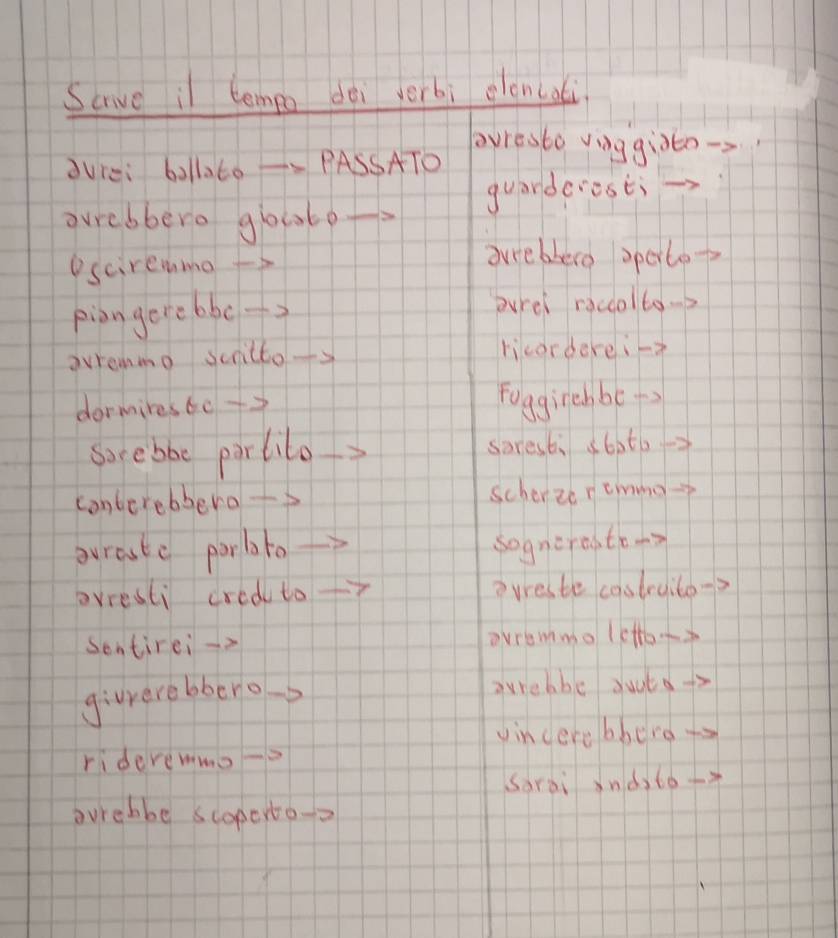 Scrive il tempo dei verbi elencati.
avrei ballato → PASSATO
avrebbero giocato →
Usciremmo →
piangerebbe →
avremmo scritto →
dormireste →
Sarebbe partito →
conterebbero →
avreste parlato →
avresti creduto →
sentirei →
giurerebbero →
rideremmo →
avrebbe scoperto →
avreste viaggiato →
guarderesti →
avrebbero aperto →
avrei raccolto →
ricorderei →
Fuggirebbe →
saresti stato →
scherzeremmo →
sognereste →
avreste costruito →
avremmo letto →
avrebbe avuto →
vincerebbero →
sarai andato →